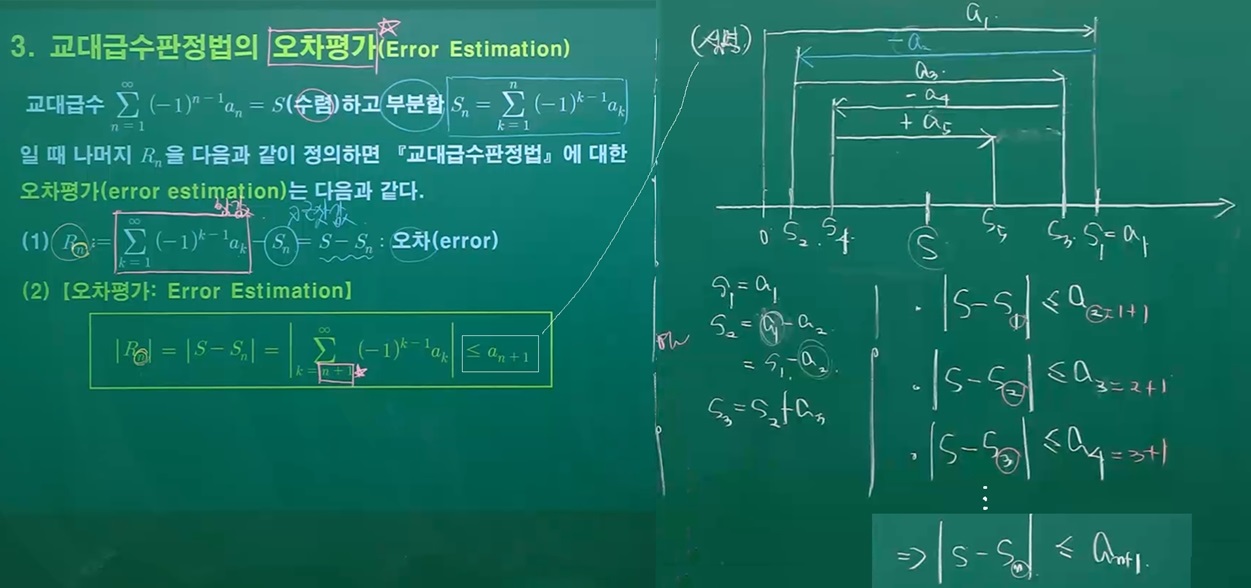 3. 교대급수판정법의 오차평가(Error Estimation)
교대급수 ∑_{n=1}^{∞} (-1)^{n-1}a_n = S(수렴)하고 부분합 S_n = ∑_{k=1}^{n} (-1)^{k-1}a_k
일 때 나머지 R_n을 다음과 같이 정의하면 『교대급수판정법』에 대한
오차평가(error estimation)는 다음과 같다.
참값 근삿값
(1) R_n := ∑_{k=1}^{∞} (-1)^{k-1}a_k - S_n = S - S_n : 오차(error)
(2) [오차평가: Error Estimation]
|R_n| = |S - S_n| = |∑_{k=n+1}^{∞} (-1)^{k-1}a_k| ≤ a_{n+1}
a_1
-a_2
a_3
-a_4
+a_5
0 S_2 S_4 S S_5 S_3 S_1 = a_1
S_1 = a_1
S_2 = a_1 - a_2
= S_1 - a_2
S_3 = S_2 + a_3
· |S - S_1| ≤ a_{2=1+1}
· |S - S_2| ≤ a_{3=2+1}
· |S - S_3| ≤ a_{4=3+1}
⋮
⇒ |S - S_n| ≤ a_{n+1}.